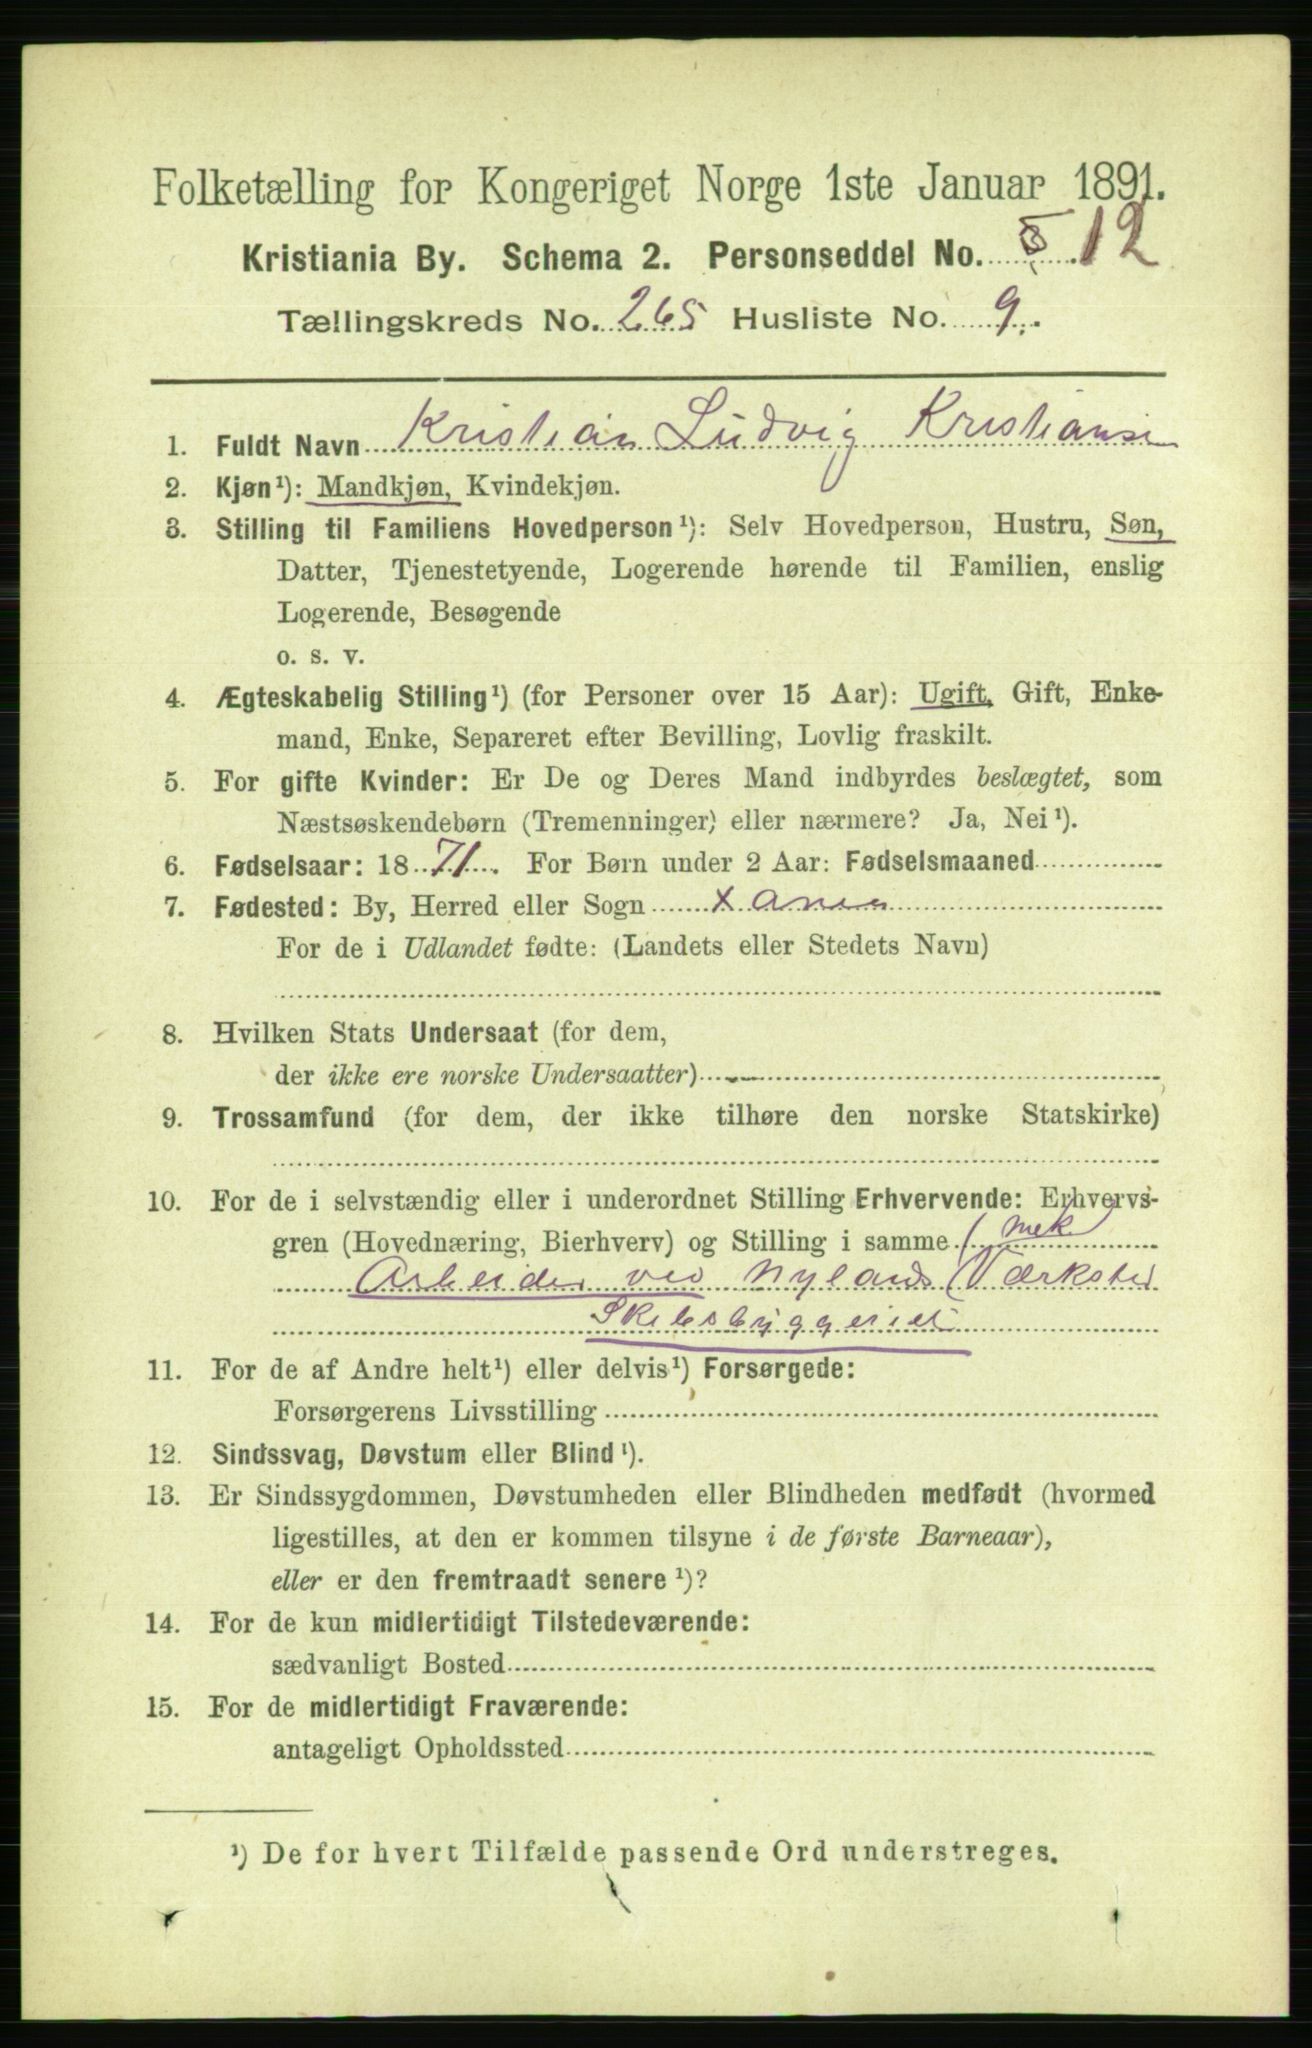 Folketælling for Kongeriget Norge 1ste Januar 1891.
Kristiania By. Schema 2. Personseddel No. 12
Tællingskreds No. 265 Husliste No. 9.
1. Fuldt Navn Kristian Ludvig Kristiansen
2. Kjøn¹): Mandkjøn, Kvindekjøn.
3. Stilling til Familiens Hovedperson¹): Selv Hovedperson, Hustru, Søn,
Datter, Tjenestetyende, Logerende hørende til Familien, enslig
Logerende, Besøgende
o. s. v.
4. Ægteskabelig Stilling¹) (for Personer over 15 Aar): Ugift, Gift, Enke-
mand, Enke, Separeret efter Bevilling, Lovlig fraskilt.
5. For gifte Kvinder: Er De og Deres Mand indbyrdes beslægtet, som
Næstsøskendebørn (Tremenninger) eller nærmere? Ja, Nei¹).
6. Fødselsaar: 1871. For Børn under 2 Aar: Fødselsmaaned
7. Fødested: By, Herred eller Sogn Xania
For de i Udlandet fødte: (Landets eller Stedets Navn)
8. Hvilken Stats Undersaat (for dem,
der ikke ere norske Undersaatter)
9. Trossamfund (for dem, der ikke tilhøre den norske Statskirke)
10. For de i selvstændig eller i underordnet Stilling Erhvervende: Erhvervs-
gren (Hovednæring, Bierhverv) og Stilling i samme (mek
Arbeider ved Nylands Værksted
Skibsbyggeriet
11. For de af Andre helt¹) eller delvis¹) Forsørgede:
Forsørgerens Livsstilling
12. Sindssvag, Døvstum eller Blind¹).
13. Er Sindssygdommen, Døvstumheden eller Blindheden medfødt (hvormed
ligestilles, at den er kommen tilsyne i de første Barneaar),
eller er den fremtraadt senere¹)?
14. For de kun midlertidigt Tilstedeværende:
sædvanligt Bosted
15. For de midlertidigt Fraværende:
antageligt Opholdssted
¹) De for hvert Tilfælde passende Ord understreges.